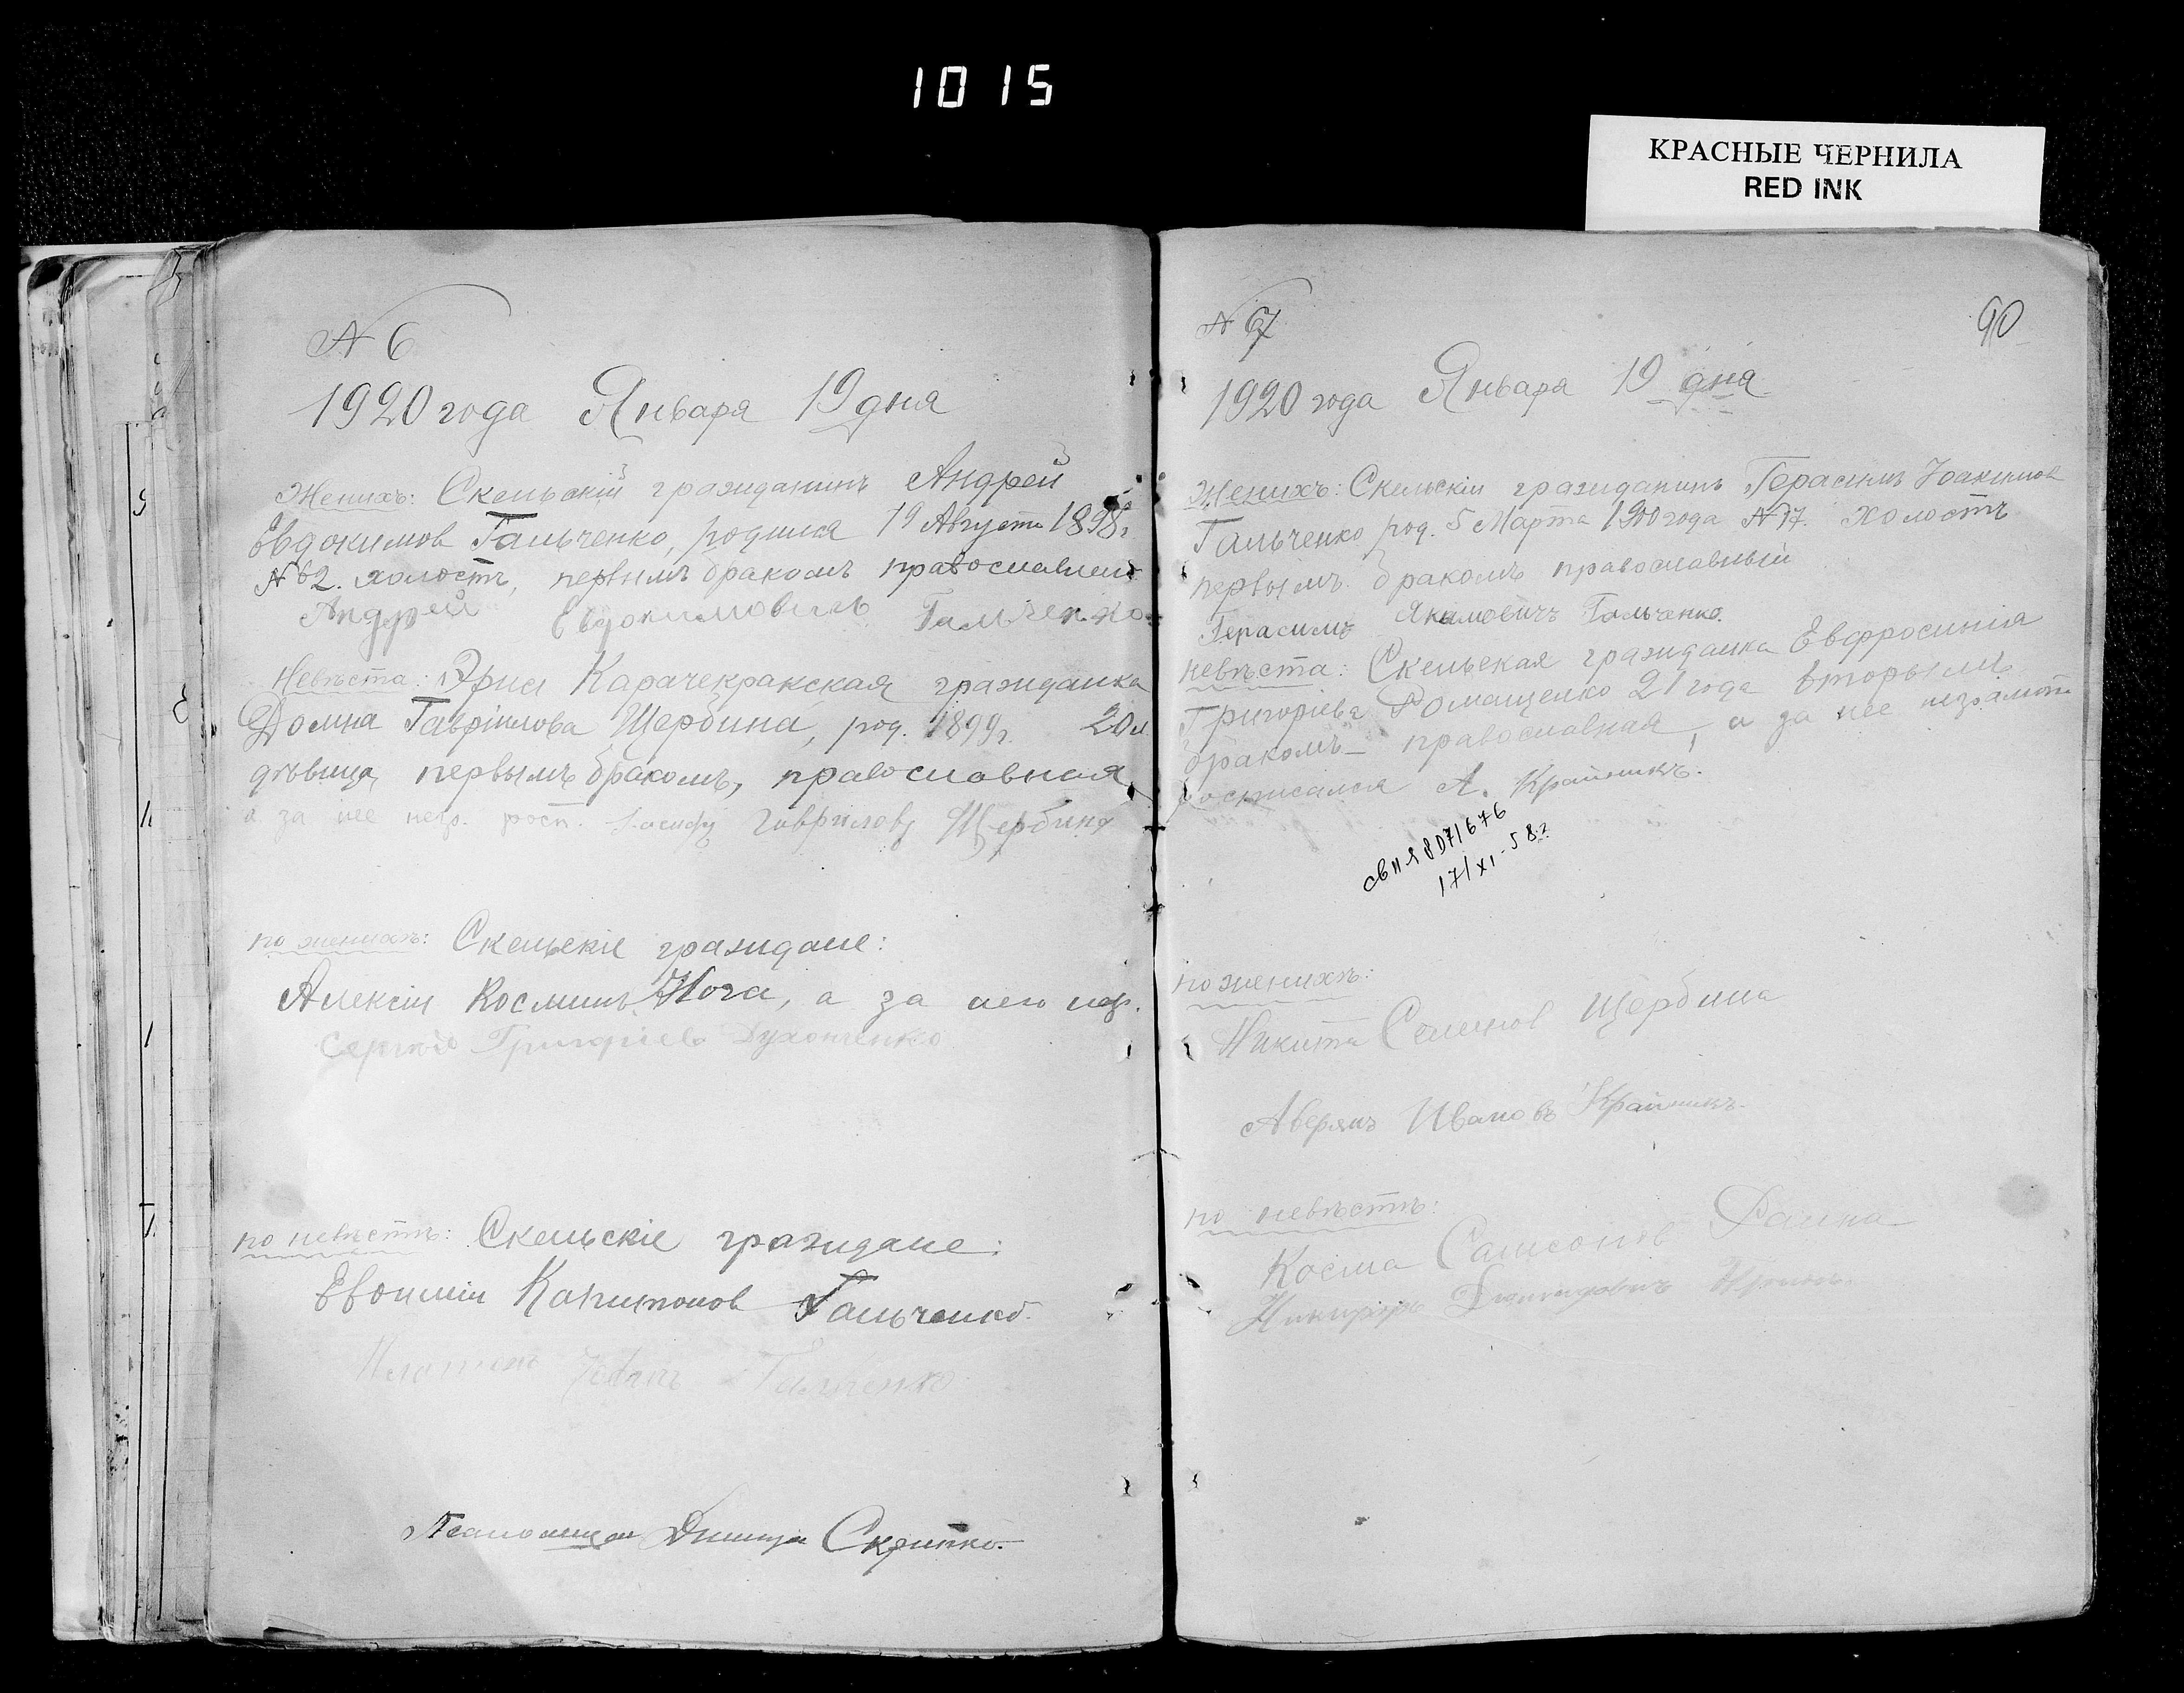 1015
КРАСНЫЕ ЧЕРНИЛА
RED INK
№ 6
1920 года Января 19 дня
Женихъ: Скельскій гражданинъ Андрей
Евдокимов Гальченко, родился 19 Августа 1898 г
№ 62. холостъ, первымъ бракомъ православный
Андрей Евдокимовичъ Гальченко
Невѣста: Карачекракская гражданка
Домна Гавріилова Щербина, род. 1899 г. 20 л
дѣвица, первымъ бракомъ, православная
а за нее негр. росп. Гаврилову Щербина
по женихѣ: Скельскіе граждане:
Алексій Косминъ Нога, а за него негр.
Сергій Григоріевъ
по невѣстѣ: Скельскіе граждане:
Евѳимій Капитонов Гальченко.
Гальченко
Скрипко.
90
№ 7
1920 года Января 19 дня
Женихъ: Скельскій гражданинъ Герасимъ Іоакимов
Гальченко род. 5 Марта 1900 года № 17. холостъ
первымъ бракомъ православный
Герасимъ Якимовичъ Гальченко.
невѣста: Скельская гражданка Евфросинія
Григоріева Ромащенко 21 года вторымъ
бракомъ – православная, а за нее неграмот
росписался А. Крайникъ.
св II ЯЯ 8071676
17/XI-58 г
по женихѣ:
Никита Семенов Щербина
Аверянъ Ивановъ Крайникъ.
по невѣстѣ:
Косма Самсонов
Никифоръ